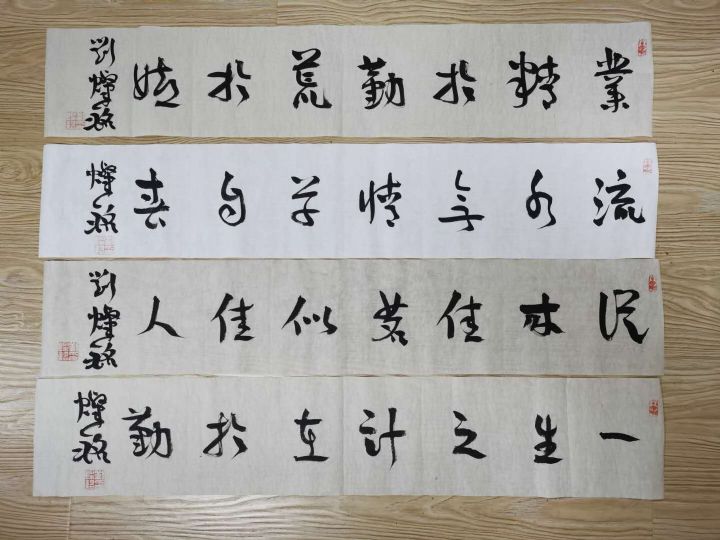 業精於勤荒於嬉
劉燦銘
流水無情草自春
燦銘
從來佳茗似佳人
劉燦銘
一生之計在於勤
燦銘